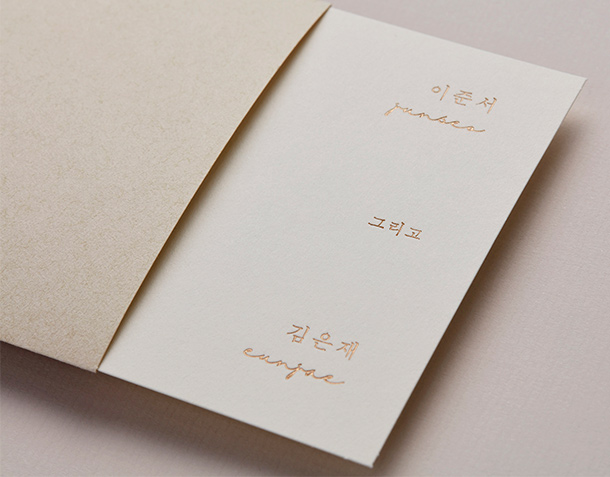 이준서
junseo
그리고
김은재
eunjae